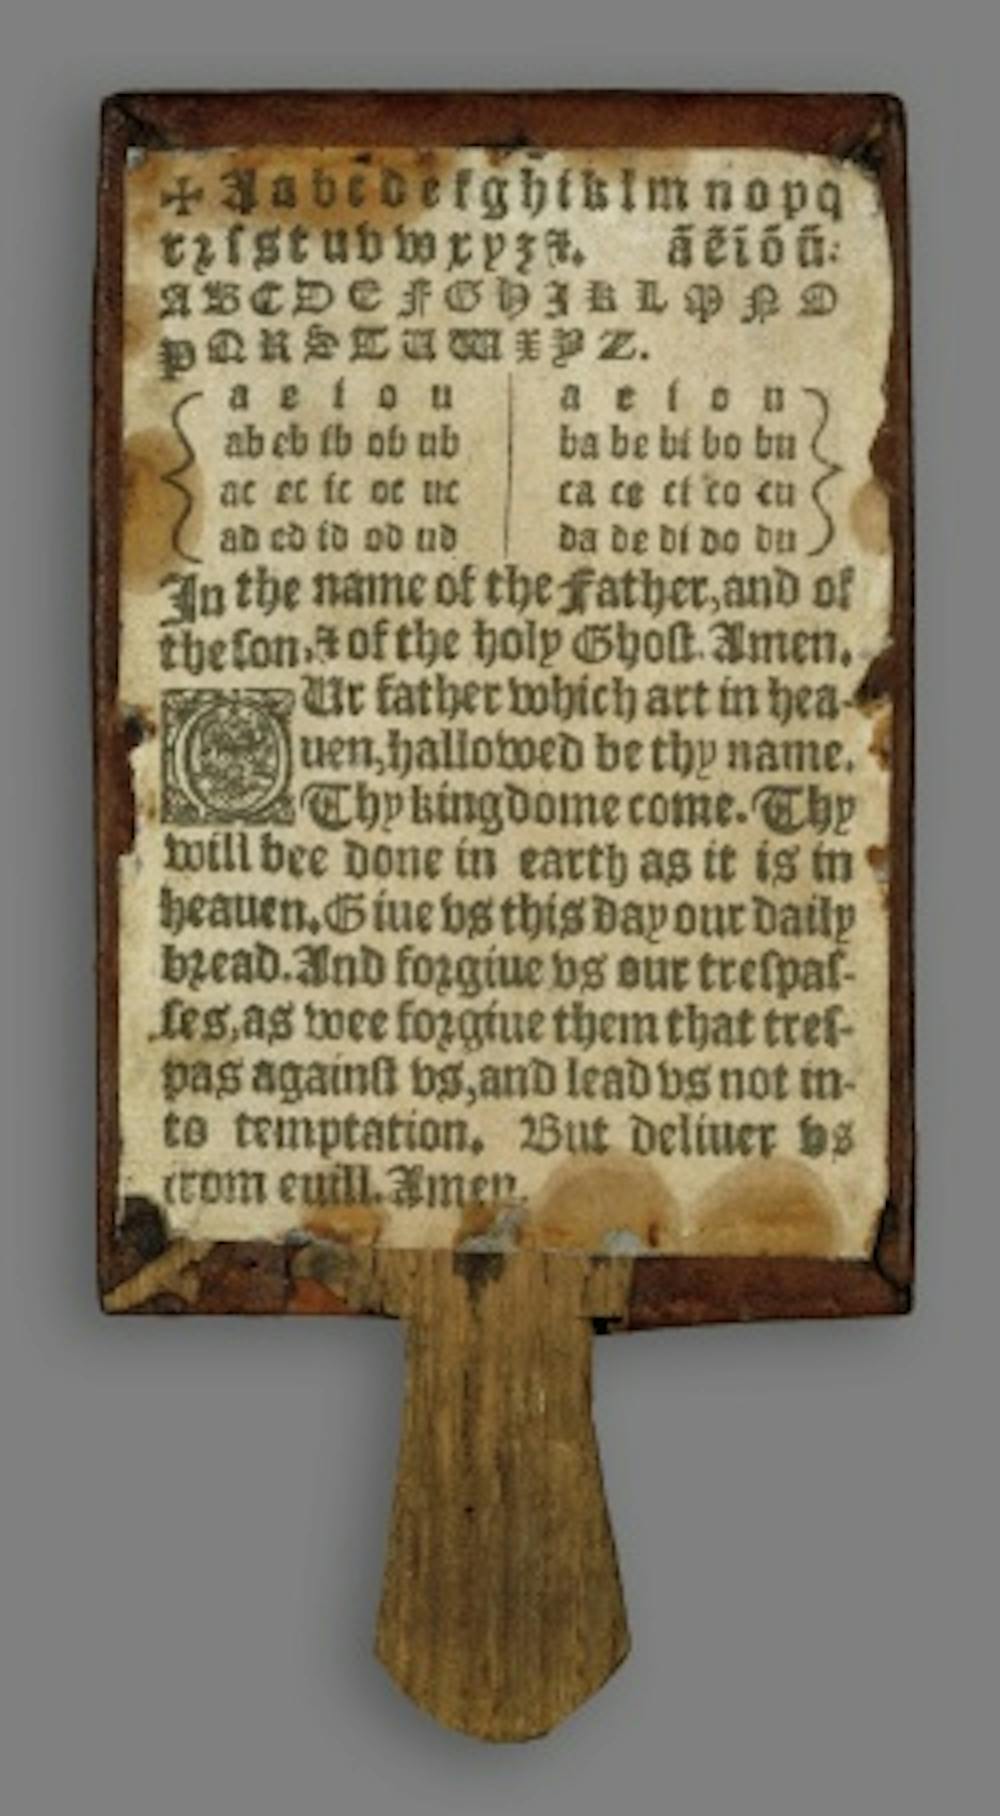 ✠ A a b c d e f g h i k l m n o p q
r ꝛ ſ s t u v w x y z &. ã ẽ ĩ õ ũ:
A B C D E F G H I K L M N O
P Q R S T U W X Y Z.
a e i o u | a e i o u
ab eb ib ob ub | ba be bi bo bu
ac ec ic oc uc | ca ce ci co cu
ad ed id od ud | da de di do du
In the name of the Father, and of
the ſon, & of the holy Ghoſt. Amen.
OUr father which art in hea-
uen, hallowed be thy name.
Thy kingdome come. Thy
will bee done in earth as it is in
heauen. Giue vs this day our daily
bꝛead. And foꝛgiue vs our treſpaſ-
ſes, as wee foꝛgiue them that treſ-
pas againſt vs, and lead vs not in-
to temptation. But deliuer vs
from euill. Amen.